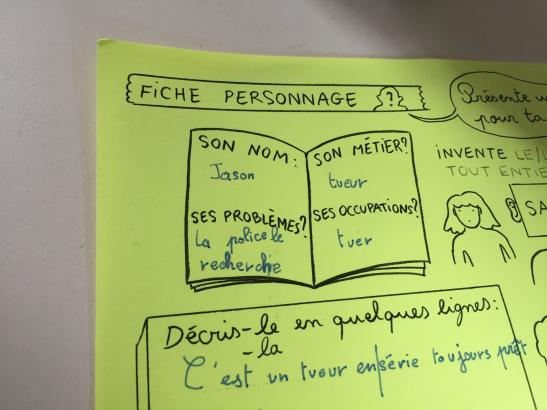 FICHE PERSONNAGE ?
Présente u
pour ta
INVENTE LE/L
TOUT ENTIE
SA
SON NOM:
Jason
SES PROBLÈMES?
La police le
recherche
SON MÉTIER?
tueur
SES OCCUPATIONS?
tuer
Décris-le en quelques lignes:
-la
C'est un tueur en série toujours prêt